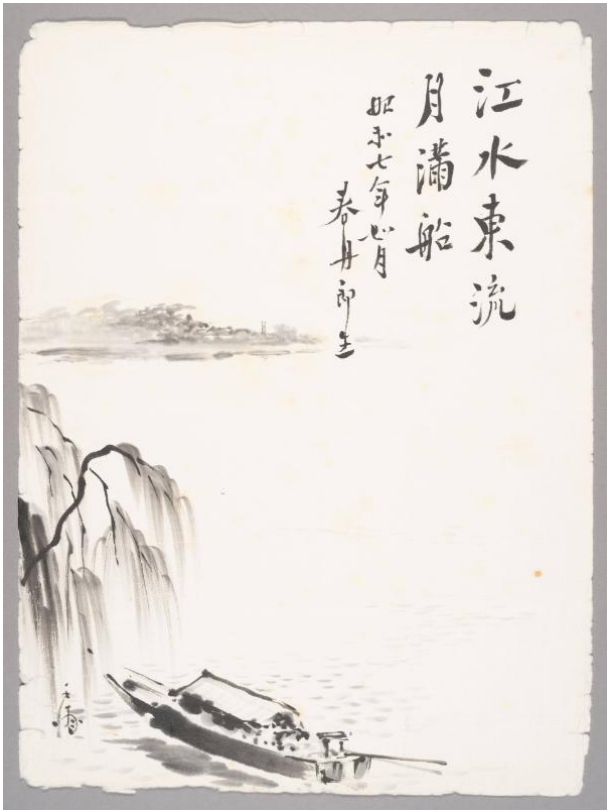 江水東流
月満船
昭和七年七月
春丹郎生